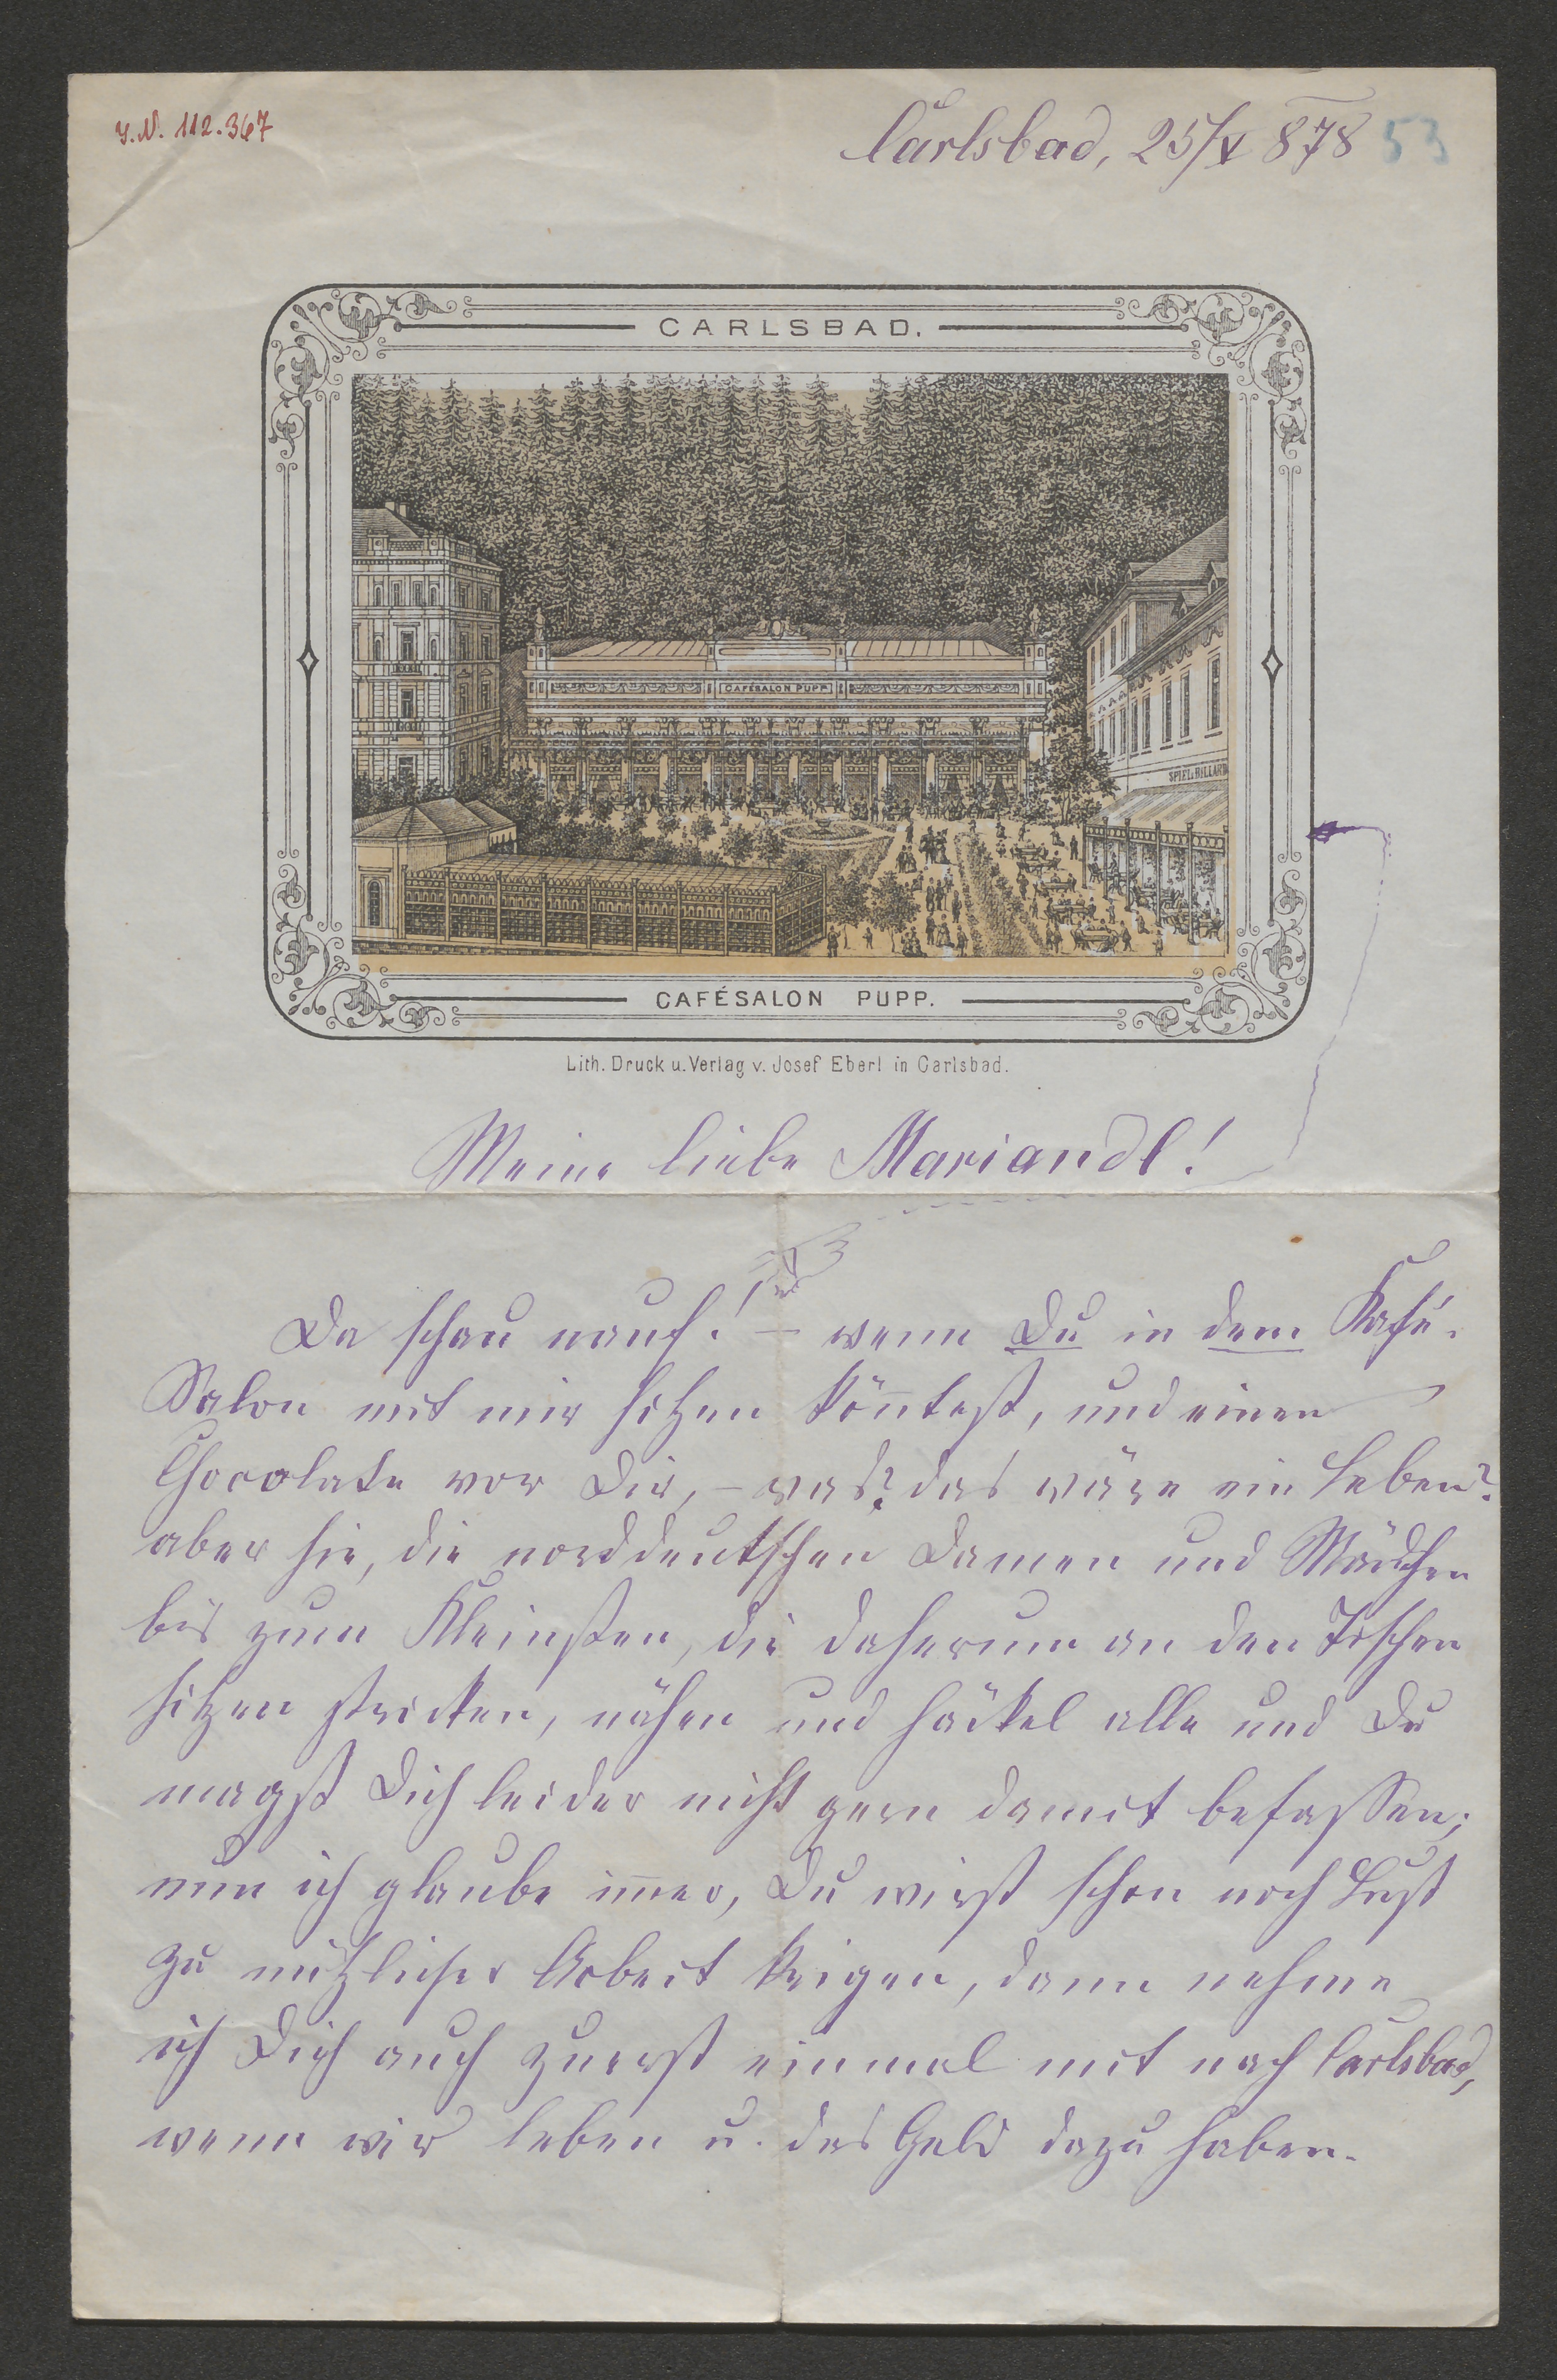 I.N. 112.367
Carlsbad, 25/V 878
53
CARLSBAD.
CAFÉSALON PUPP
SPIEL u. BILLARD
CAFÉSALON PUPP.
Lith. Druck u. Verlag v. Josef Eberl in Carlsbad.
Meine liebe Mariandl!
Da schau nauf! – wenn Du in dem Kafé-
Salon mit mir sitzen kön̄test, und einen
Chocolate vor Dir, – was? das wäre ein Leben?
aber hie, die norddeutschen Damen und Mädchen
bis zum Kleinsten, die daherum an den Tischen
sitzen stricken, nähen und häckel alle und Du
magst Dich leider nicht gern damit befassen;
nun ich glaube im̄er, Du wirst schon noch Lust
zu nützlicher Arbeit krigen, dann nehme
ich Dich auch zuerst einmal mit nach Carlsbad,
wenn wir leben u. das Geld dazu haben.